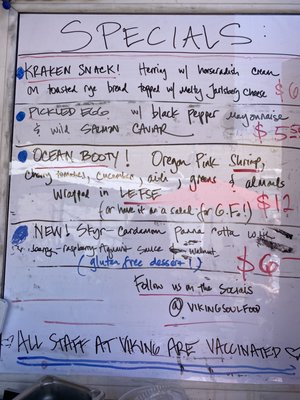 SPECIALS:
KRAKEN SNACK! Herring w/ horseradish cream
on toasted rye bread topped w/ melty Jarlsberg cheese $6
PICKLED EGG w/ black pepper mayonnaise
& wild SALMON CAVIAR $5
OCEAN BOOTY! Oregon Pink Shrimp,
cherry tomatoes, cucumber, greens & almonds
wrapped in LEFSE $12
(or have it as a salad for G.F.!)
NEW! Skyr-Cardamom Panna Cotta with
raspberry sauce walnut $6
(gluten free dessert!)
Follow us on the socials
@VIKINGSOULFOOD
ALL STAFF AT VIKING ARE VACCINATED